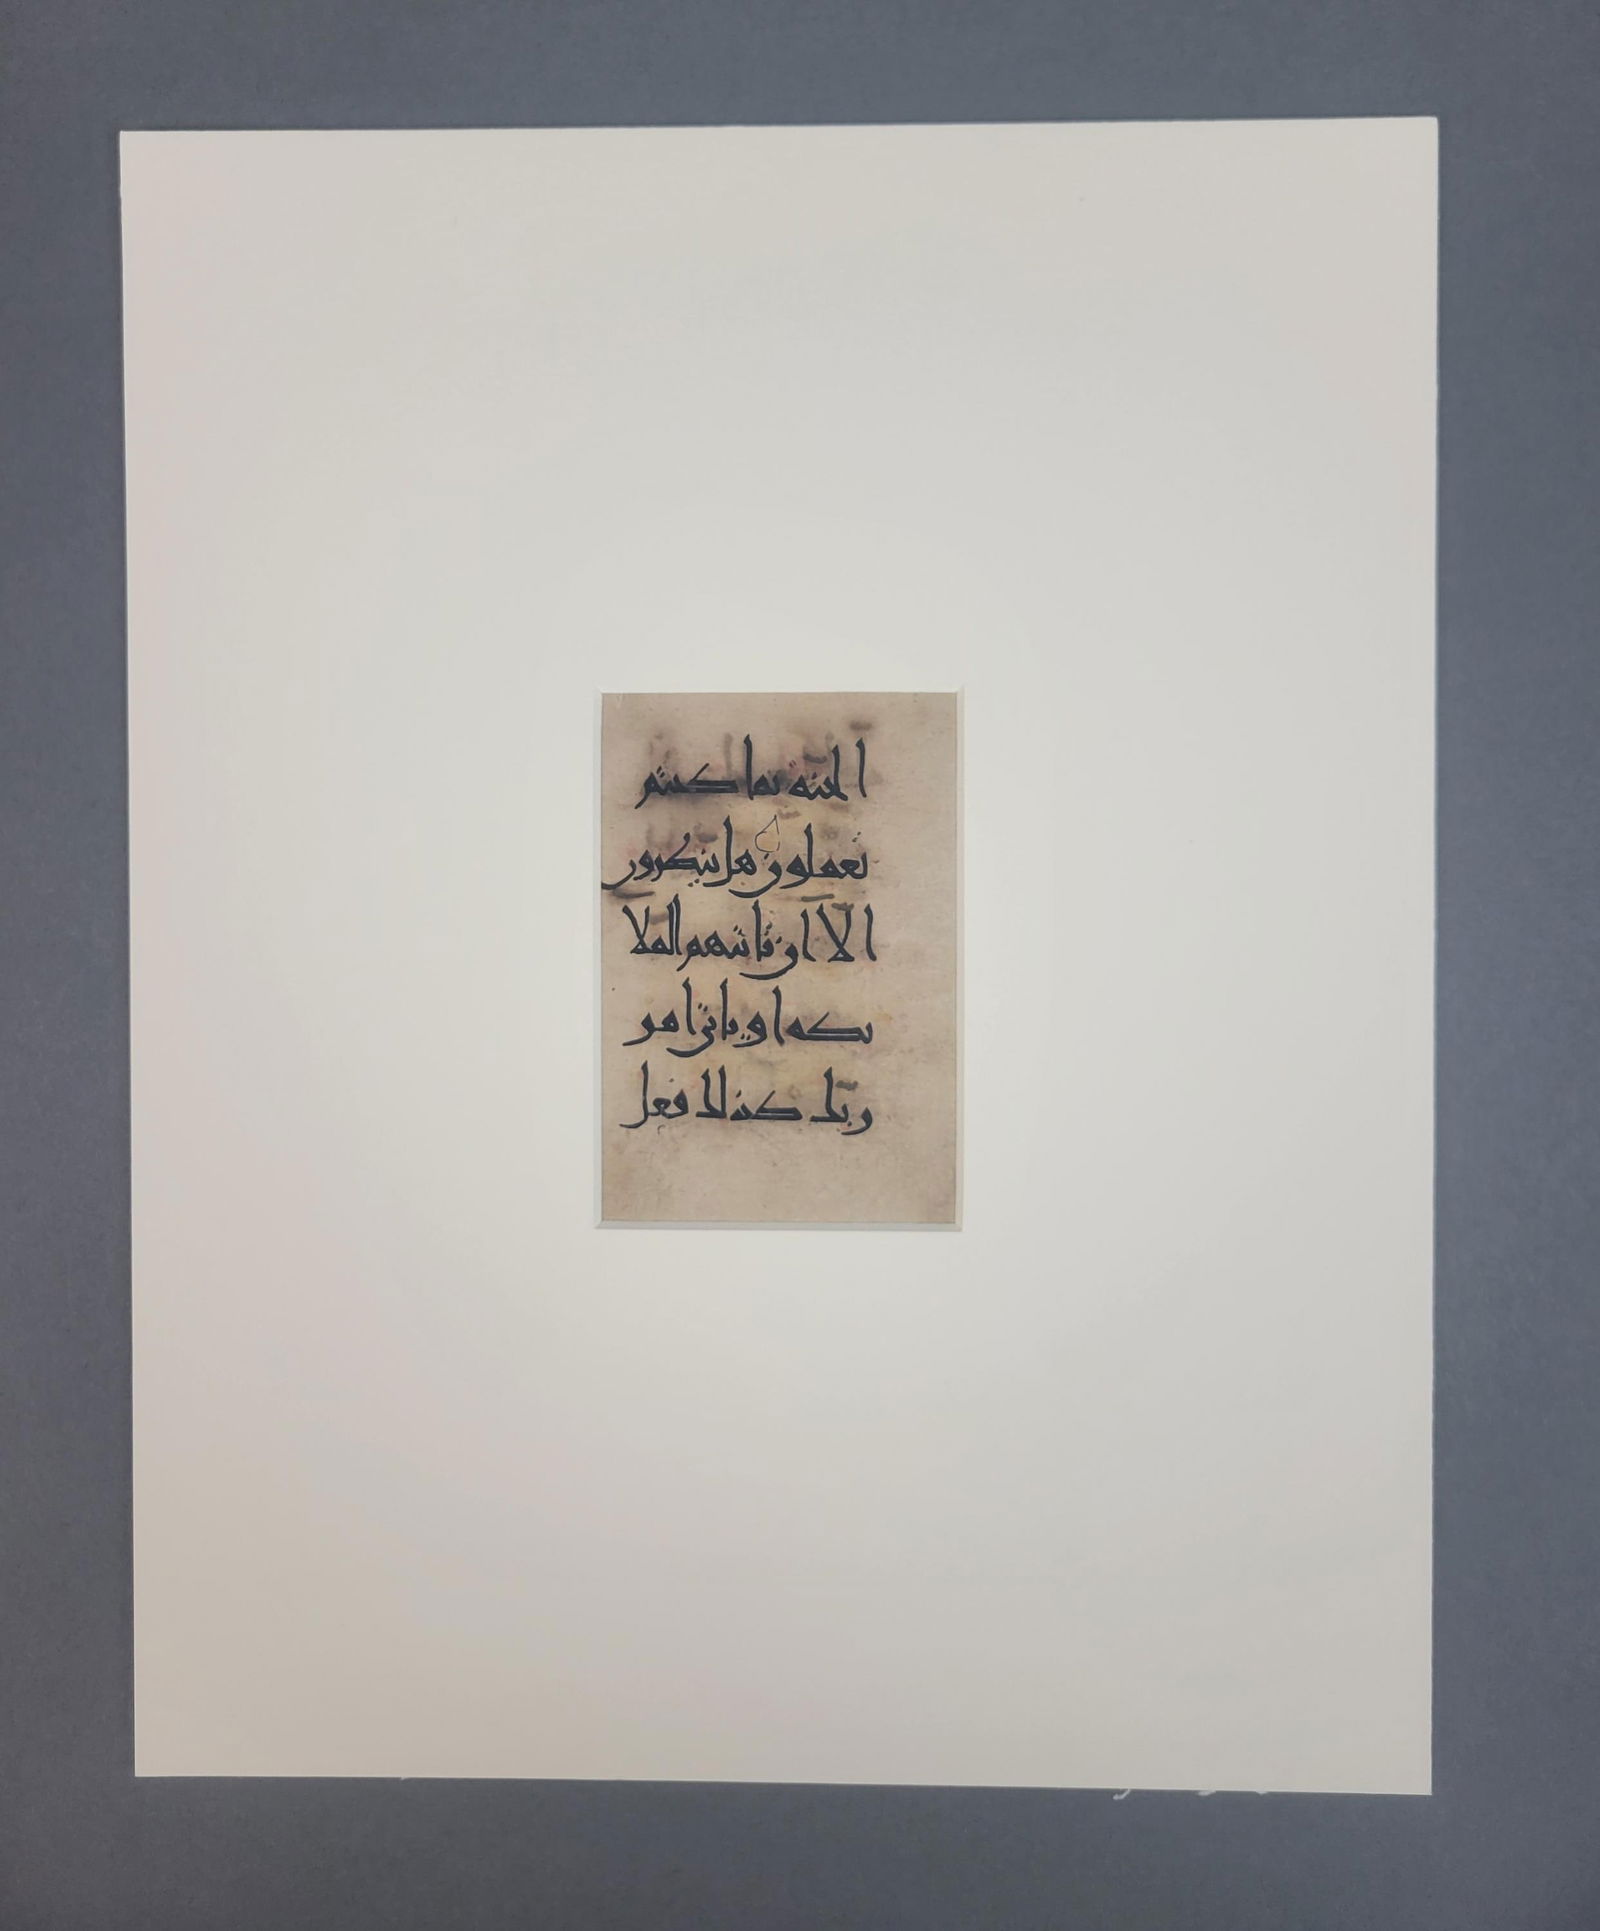 الجنة بما كنتم
تعملون هل ينظرون
الا ان تاتيهم الملا
ئكة او ياتي امر
ربك كذلك فعل